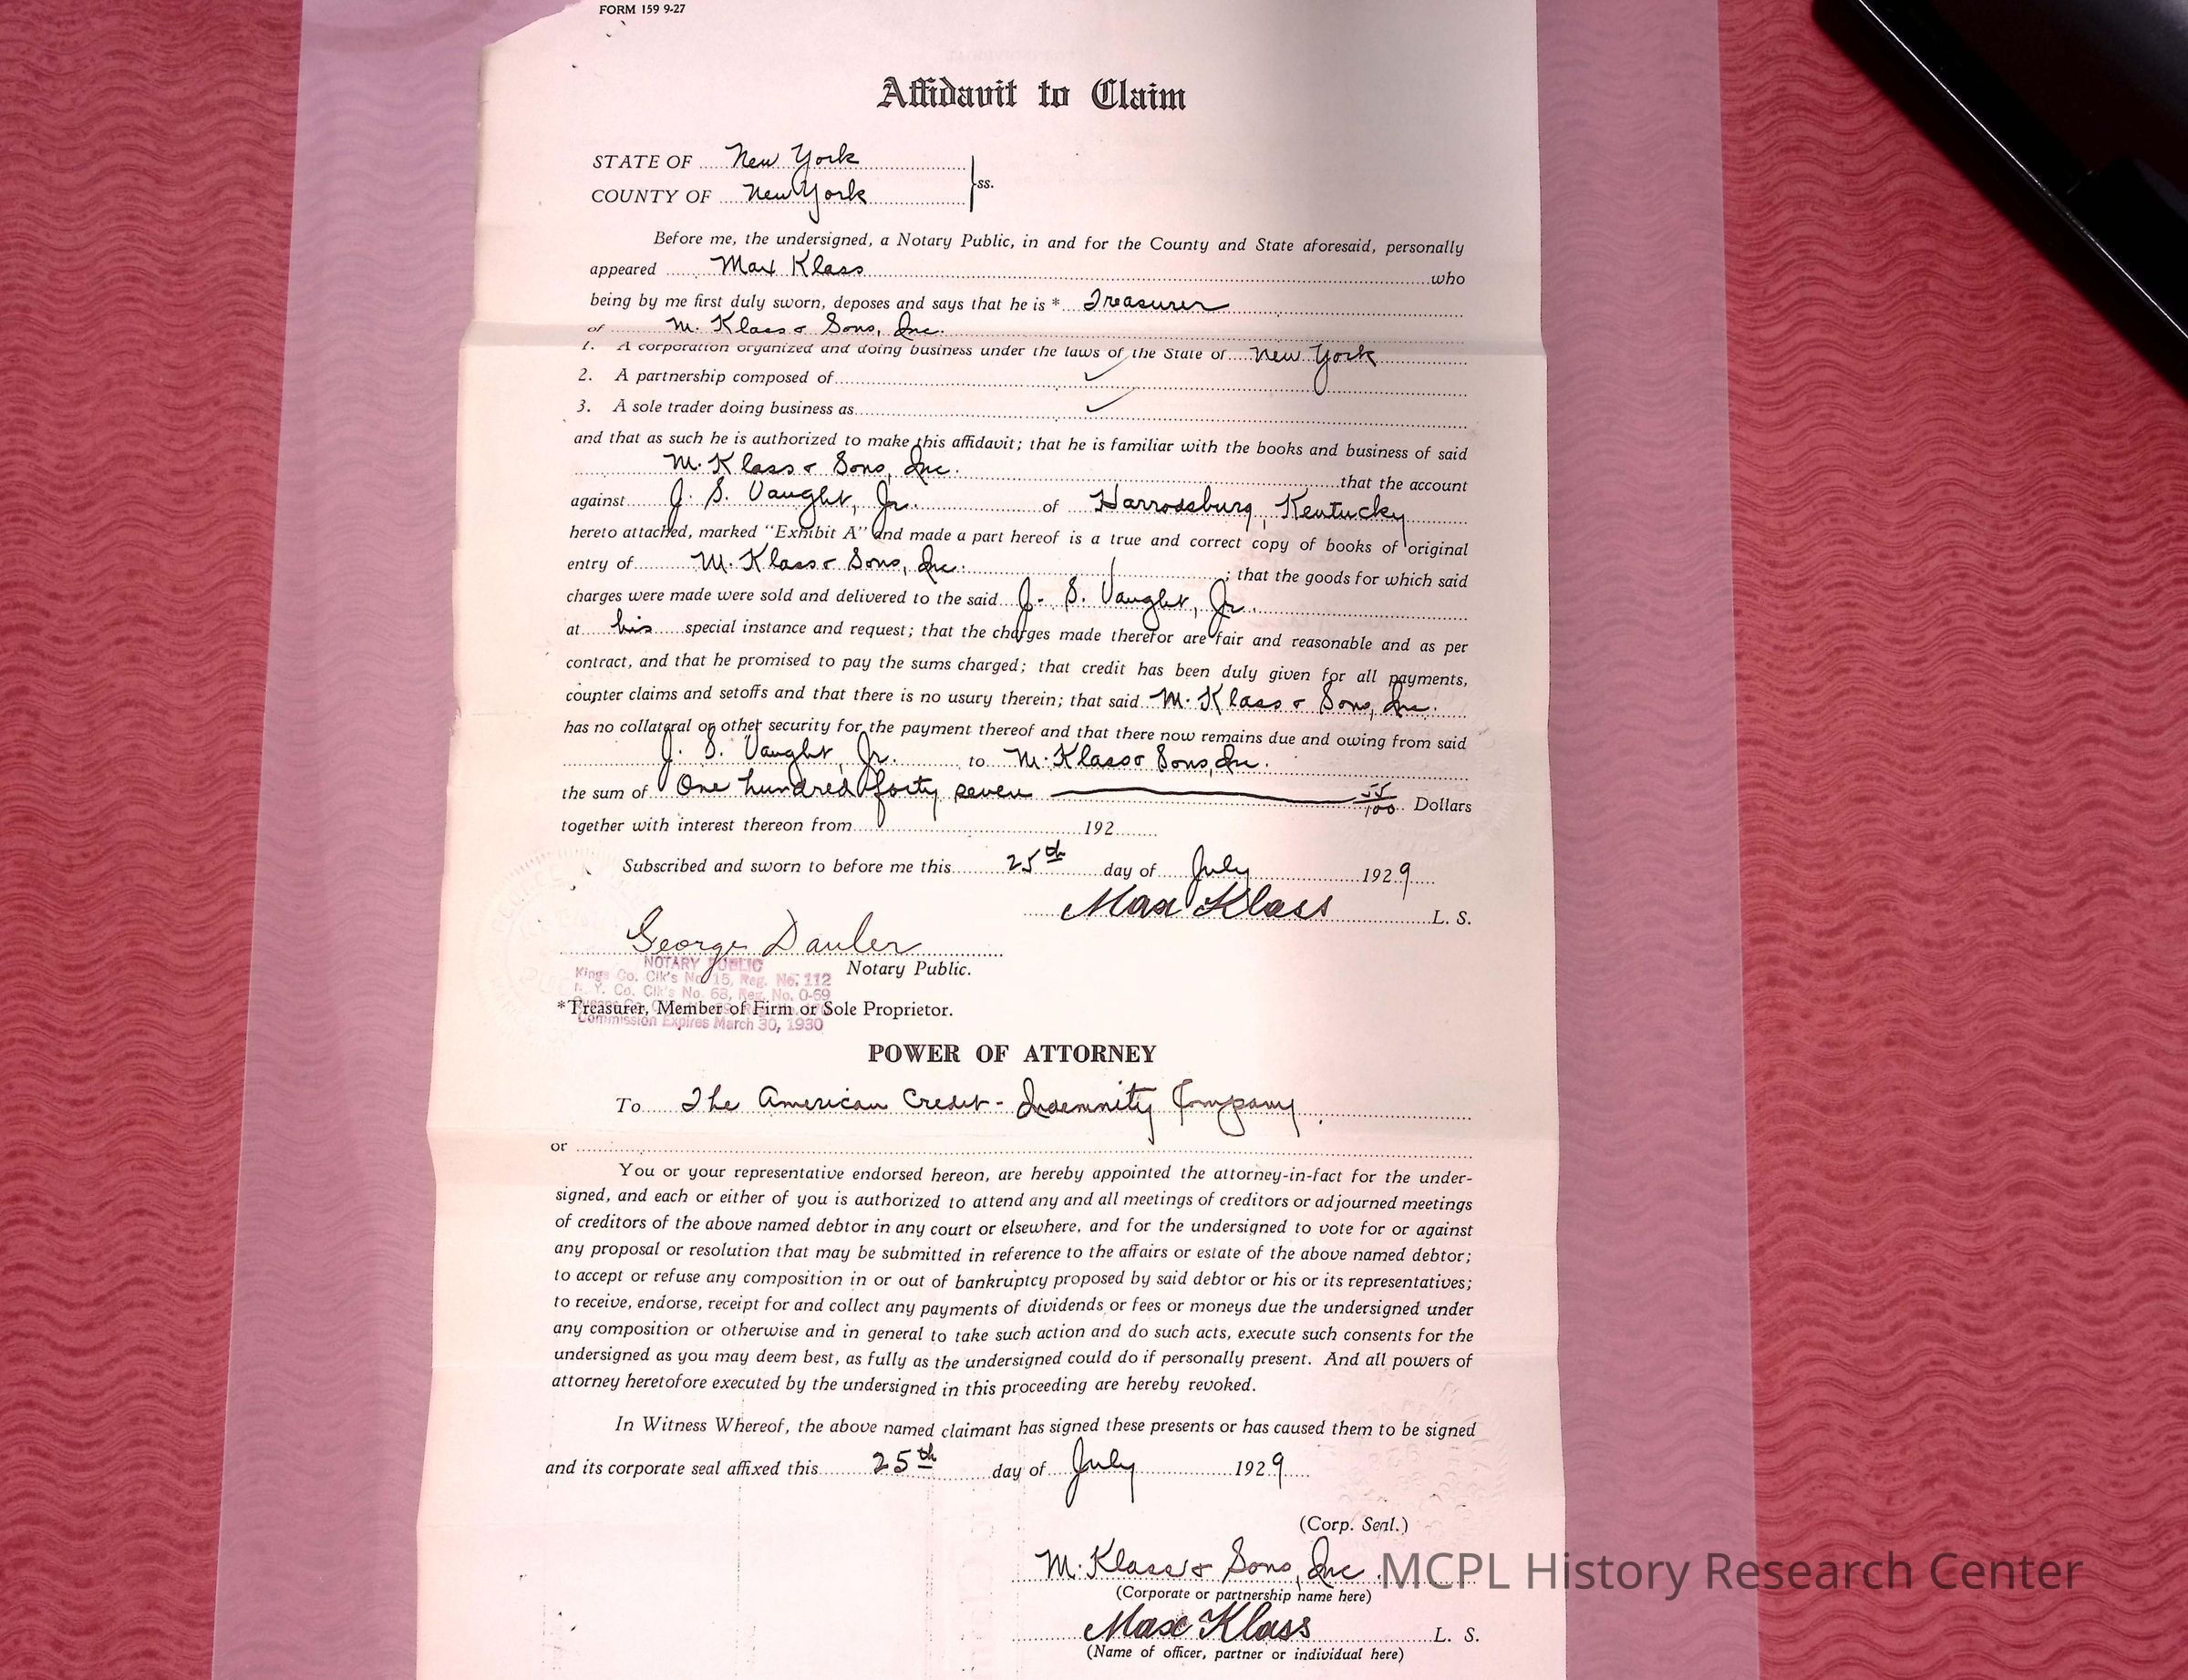 FORM 159 9-27
Affidavit to Claim
STATE OF New York
COUNTY OF New York ss.
Before me, the undersigned, a Notary Public, in and for the County and State aforesaid, personally
appeared Max Klass who
being by me first duly sworn, deposes and says that he is * Treasurer
of M. Klass & Sons, Inc.
1. A corporation organized and doing business under the laws of the State of New York
2. A partnership composed of
3. A sole trader doing business as
and that as such he is authorized to make this affidavit; that he is familiar with the books and business of said
M. Klass & Sons, Inc. that the account
against J. S. Vaught, Jr. of Harrodsburg, Kentucky
hereto attached, marked "Exhibit A" and made a part hereof is a true and correct copy of books of original
entry of M. Klass & Sons, Inc. ; that the goods for which said
charges were made were sold and delivered to the said J. S. Vaught, Jr.
at his special instance and request; that the charges made therefor are fair and reasonable and as per
contract, and that he promised to pay the sums charged; that credit has been duly given for all payments,
counter claims and setoffs and that there is no usury therein; that said M. Klass & Sons, Inc.
has no collateral or other security for the payment thereof and that there now remains due and owing from said
J. S. Vaught, Jr. to M. Klass & Sons, Inc.
the sum of One hundred forty seven 55/100 Dollars
together with interest thereon from 192
Subscribed and sworn to before me this 25th day of July 1929
Max Klass L. S.
George Dauler
NOTARY PUBLIC
Notary Public.
Kings Co. Clk's No. 15, Reg. No. 112
N. Y. Co. Clk's No. 63, Reg. No. 0-69
*Treasurer, Member of Firm or Sole Proprietor.
Commission Expires March 30, 1930
POWER OF ATTORNEY
To The American Credit-Indemnity Company
or
You or your representative endorsed hereon, are hereby appointed the attorney-in-fact for the under-
signed, and each or either of you is authorized to attend any and all meetings of creditors or adjourned meetings
of creditors of the above named debtor in any court or elsewhere, and for the undersigned to vote for or against
any proposal or resolution that may be submitted in reference to the affairs or estate of the above named debtor;
to accept or refuse any composition in or out of bankruptcy proposed by said debtor or his or its representatives;
to receive, endorse, receipt for and collect any payments of dividends or fees or moneys due the undersigned under
any composition or otherwise and in general to take such action and do such acts, execute such consents for the
undersigned as you may deem best, as fully as the undersigned could do if personally present. And all powers of
attorney heretofore executed by the undersigned in this proceeding are hereby revoked.
In Witness Whereof, the above named claimant has signed these presents or has caused them to be signed
and its corporate seal affixed this 25th day of July 1929
(Corp. Seal.)
M. Klass & Sons, Inc.
MCPL History Research Center
(Corporate or partnership name here)
Max Klass L. S.
(Name of officer, partner or individual here)